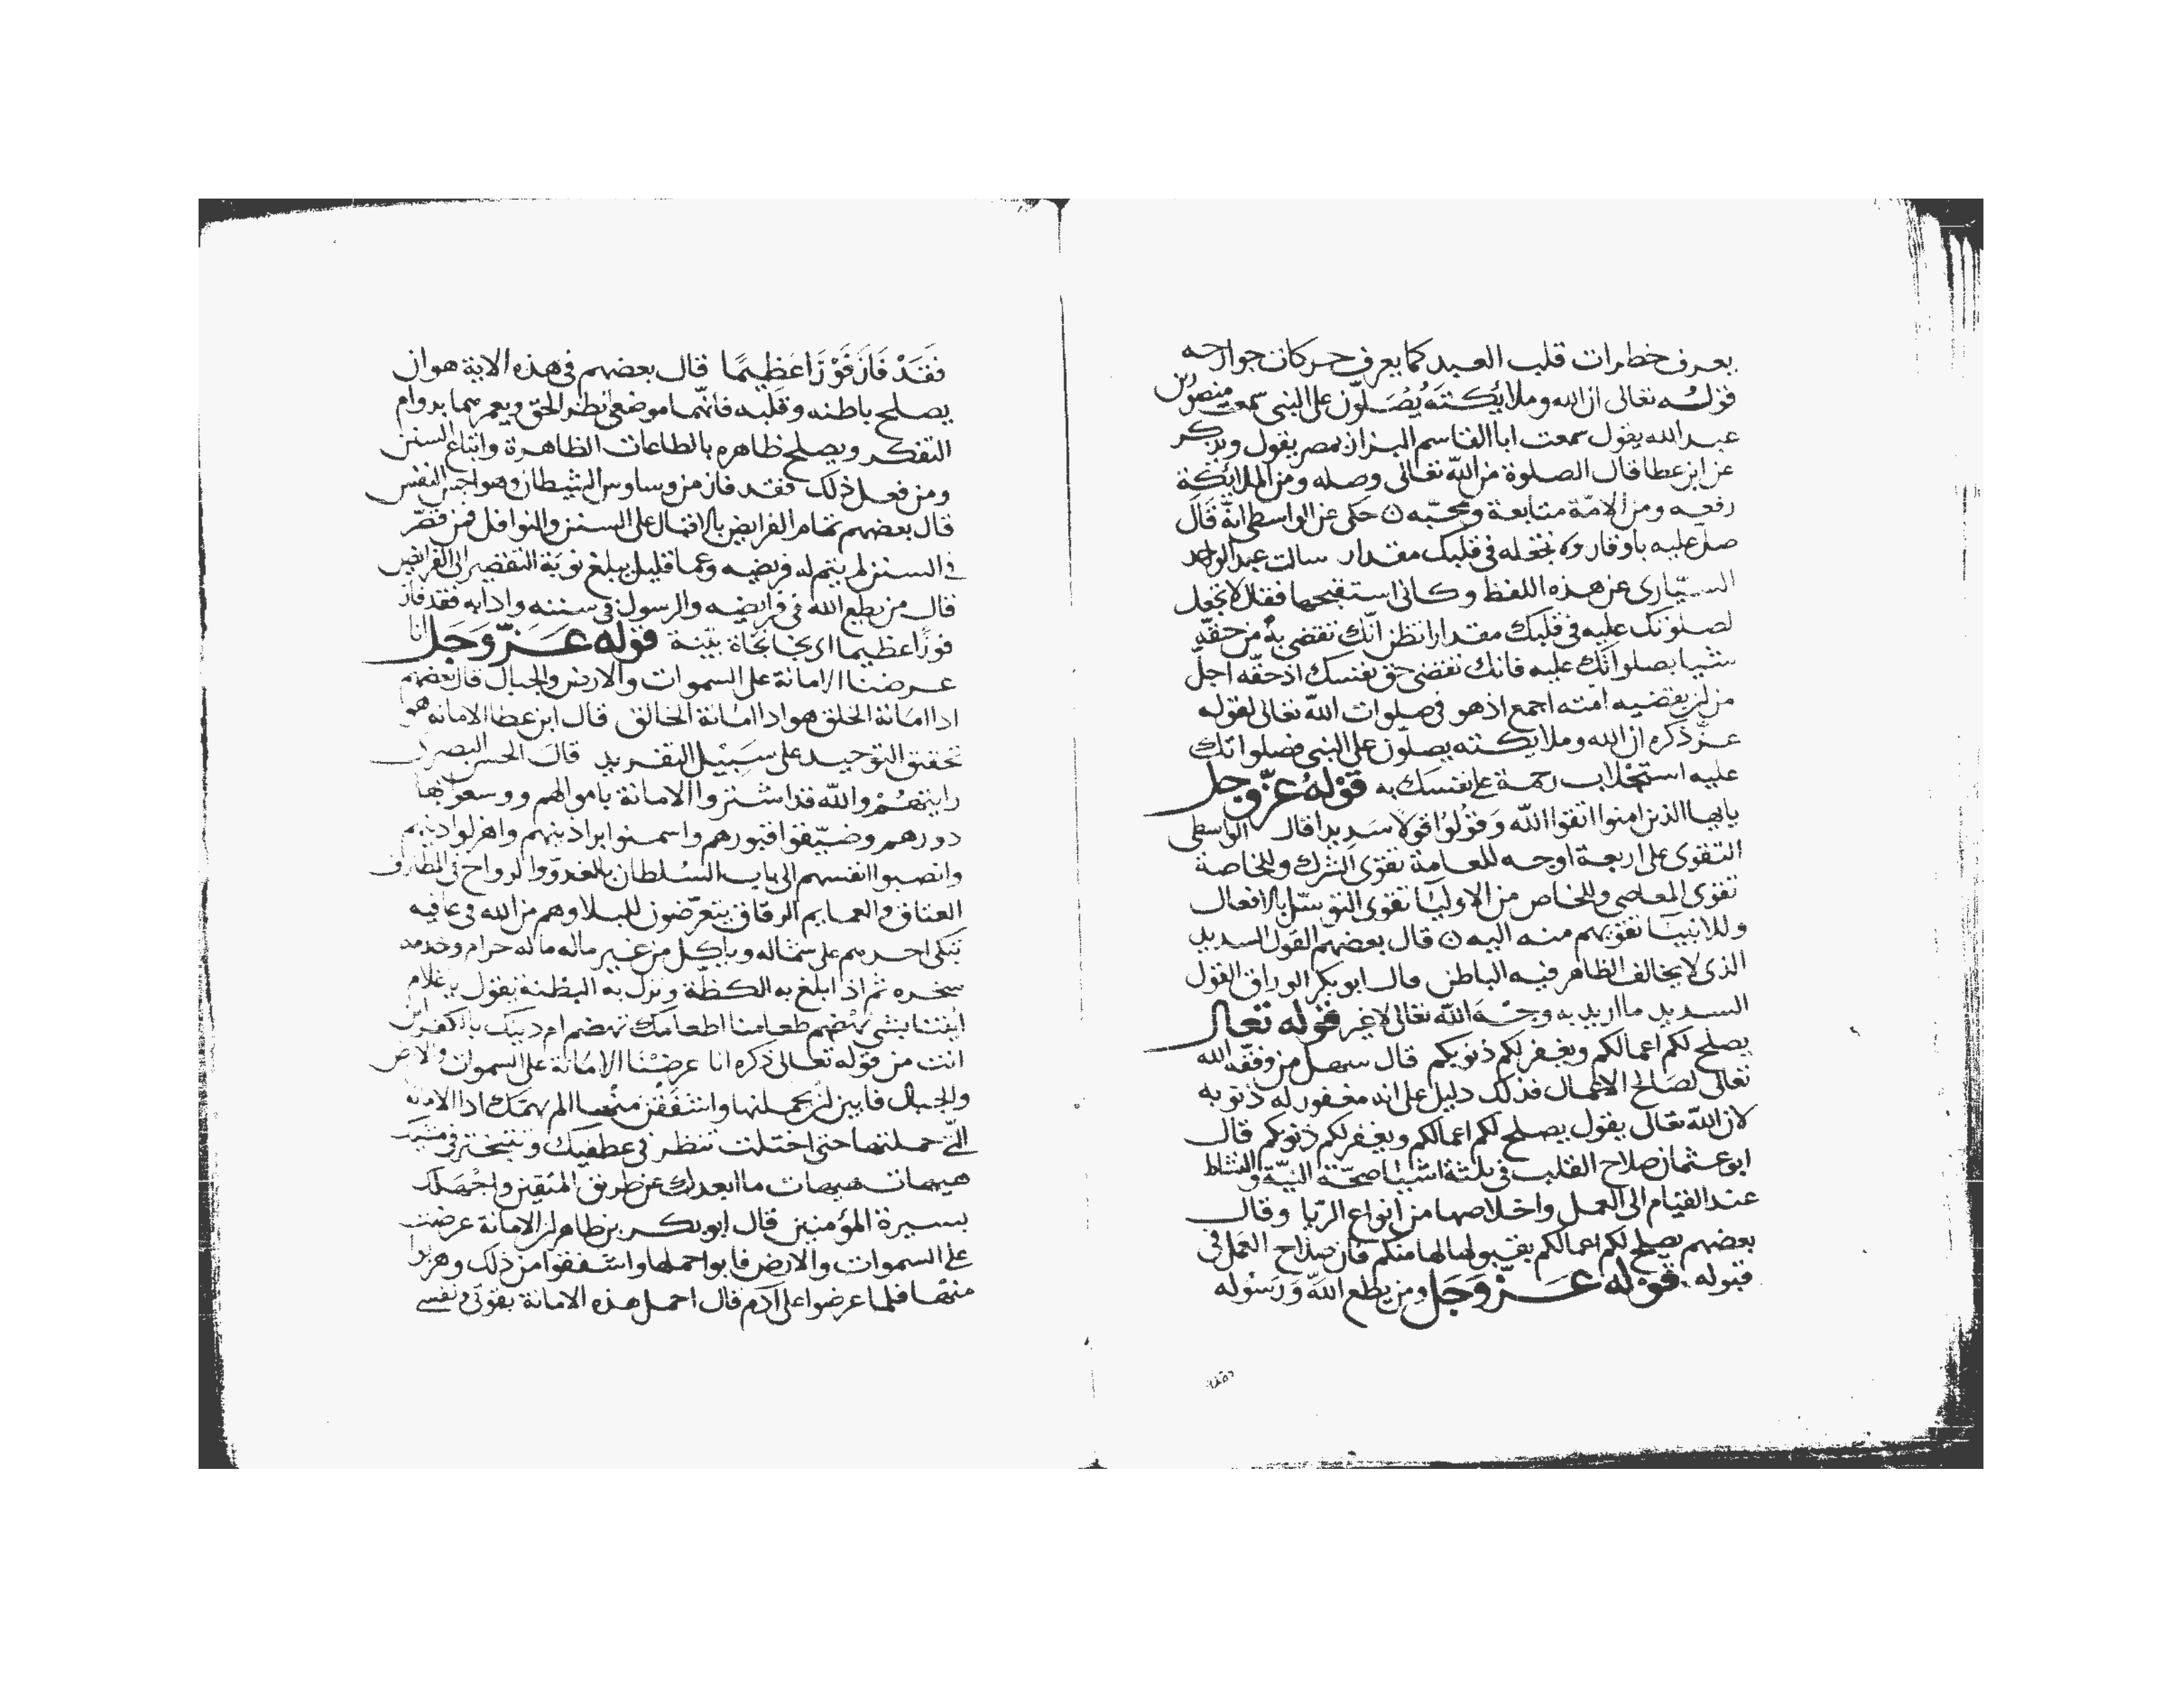 يعرف خطرات قلب العبد كما يعرف حركات جوارحه
قوله تعالى ان الله وملائكته يُصَلّون على النبى سمعت منصور بن
عبد الله يقول سمعت ابا القاسم البزاز بمصر يقول
عن ابن عطا قال الصلوة من الله تعالى وصله ومن الملائكة
رفعه ومن الامّة متابعة ومحبّه ن حكى عن الواسطى انّه قَالَ
صلّ عليه باوقار ولا تجعله فى قلبك مقدار سالت عبد الواحد
السيّارى عن هذه اللفظ وكانى استقبحها فقال لا تجعل
لصلوتك عليه فى قلبك مقدارا تظن انّك تقضى به من حقّه
شيا بصلواتك عليه فانك تقضى حق نفسك اذ حقّه اجلّ
من ان يقضيه امته اجمع اذ هو فى صلوات الله تعالى لقوله
عزّ ذكره ان الله وملايكته يصلّون على النبى فصلواتك
عليه استجلاب رحمة على نفسك به قوله عزّ وجل
يايها الذين امنوا اتقوا الله وَقُولُوا قولا سَدِيدا قال الواسطى
التقوى على اربعة اوجه للعامة تقوى الشرك وللخاصة
تقوى المعاصى وللخاص من الاوليَا تقوى التوسّل بالافعال
وللانبيَا تقويهم منه اليه ن قال بعضهم القول السديد
الذى لا يخالف الظاهر فيه الباطن قال ابو بكر الوراق القول
السديد ما اريد به وجه الله تعالى لا غير قوله تعالى
يصلح لكم اعمالكم ويغفر لكم ذنوبكم قال سهل من وفقه الله
تعالى لصَالح الاعمال فذلك دليل على انه مغفور له ذنوبه
لان الله تعالى يقول يصلح لكم اعمالكم ويغفر لكم ذنوبكم قال
ابو عثمان صلاح القلب فى ثلثة اشيا صحّة النيّة والنشاط
عند القيام الى العمل واخلاصها من انواع الريا وقال
بعضهم يصلح لكم اعمالكم بقبولها منكم فان صلاح العَمَل فى
قبوله قوله عَزّ وَجَل ومن يطع الله وَرَسُوله
فقد
فَقَدْ فَازَ فَوْزًا عَظِيمًا قال بعضهم فى هذه الاية هو ان
يصلح باطنه وقلبه فانّهما موضعى نظر الحق ويعمرهما بدوام
التفكر ويصلح ظاهره بالطاعات الظاهرة واتباع السنن
ومن فعل ذلك فقد فاز من وساوس الشيطان وهواجس النفس
قال بعضهم تمام الفرايض بالاقبال على السنن والنوافل فمن قصّر
فى السنن لم يتم له فريضه وعما قليل يبلغ نوبَة التقصير الى الفرايض
قال من يطع الله فى فرايضه والرسول فى سننه وادابه فقد فاز
فوزًا عظيما اى نجا نجَاة بيّنة قوله عَزّ وَجَل انا
عرضنا الامانة على السموات والارض والجبال قال بعضهم
ادا امَانة الخلق هو ادا امَانة الخالق قال ابن عطا الامانه هو
تحقيق التوحيد على سَبِيْل التفريد قال الحسن البصرى
رايتهُمْ والله قد اشتروا الامانة باموالهم ووسعوا بها
دورهم وضيّقوا قبورهم واسمنوا براذينهم واهزلوا دينهم
واتصبوا انفسهم الى باب السُلطان بالغدوّ والرواح فى المطارف
العتاق والعمايم الرقاق يتعرّضون للبلا وهم من الله فى عافيه
يتكى احدهم على شماله وياكل من غير ماله ماله حرام وخدمه
سخره ثم اذا بلغ به الكظّة ونزل به البطنة يقول يا غلام
ايتنا بشى نهضم طعامنا اطعامك تهضم ام دينك يا لكع اين
انت من قوله تعالى ذكره انا عرضْنَا الامَانة على السموات والارض
والجبال فابين ان يحملنها واشفَقْن منْها الم يهمّك ادا الامانة
التّى حملتها حتى اختلت تنظر فى عطفيك وتتبختر فى مشيك
هيهات هيهات ما ابعدك عن طريق المتّقين واجْهَلك
بسيرة المؤمنين قال ابو بكر بن طاهر ان الامانة عرضت
على السموات والارض فابوا حملها واشفقوا من ذلك وهربوا
منها فلما عرضوا على آدم قال احمل هذه الامانة بقوتى ونفسى